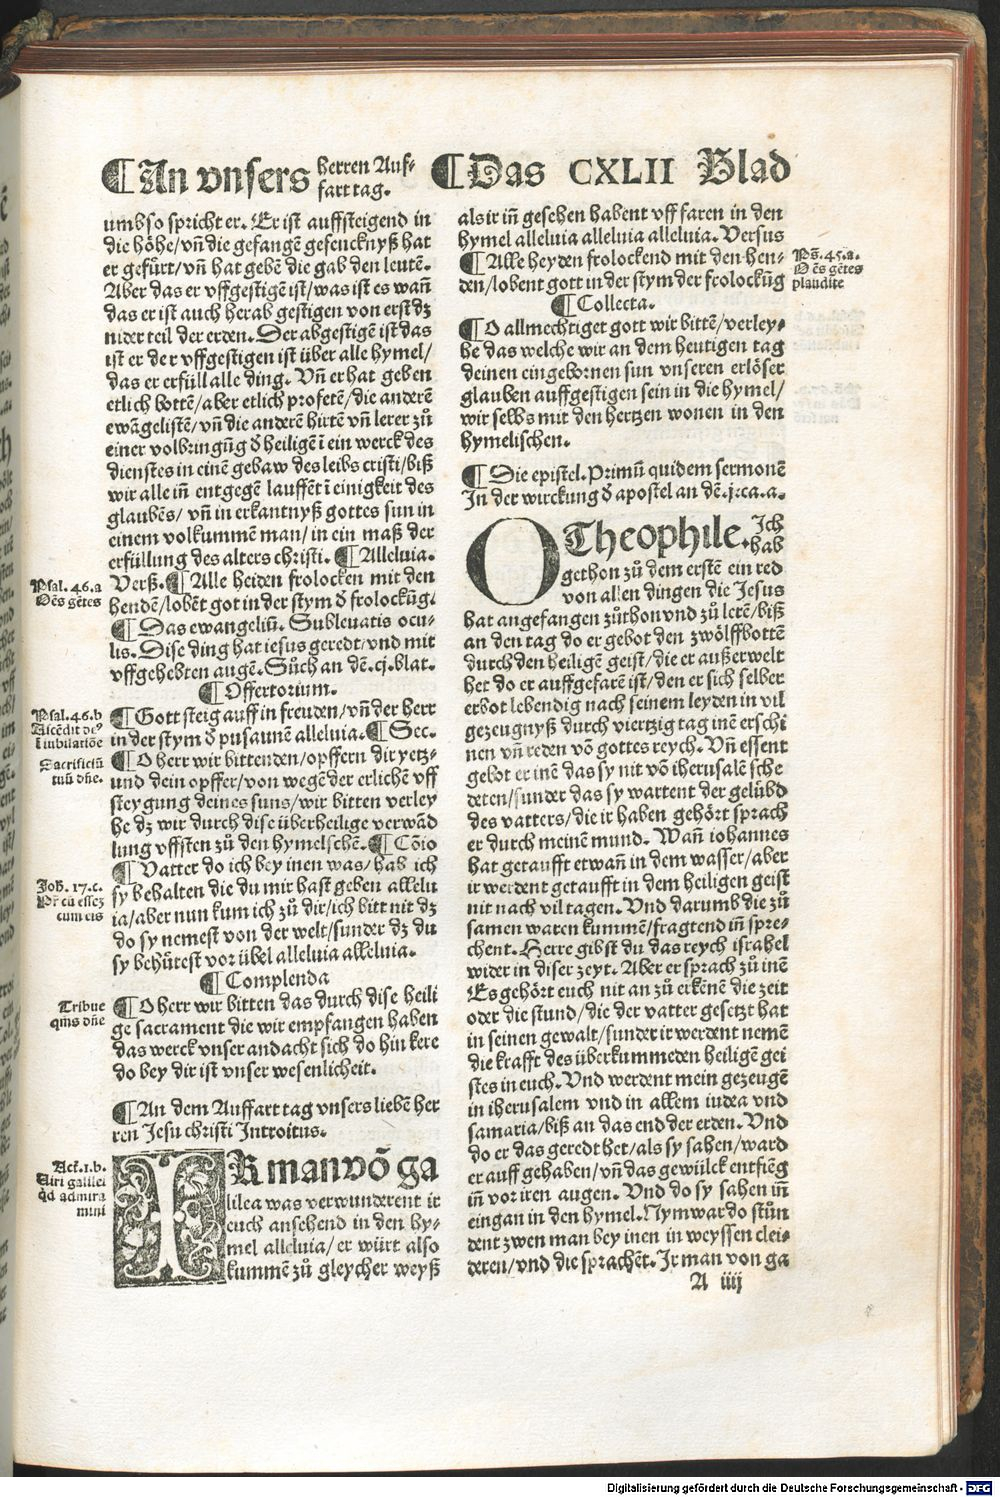 ¶An vnsers herren Auf-
fart tag.
¶Das CXLII Blad
umbso spricht er. Er ist auffsteigend in
die höhe/vñ die gefangẽ gefencknyß hat
er gefürt/vñ hat gebẽ die gab den leutẽ.
Aber das er vffgestigẽ ist/was ist es wañ
das er ist auch herab gestigen von erst dz
nider teil der erden. Der abgestigẽ ist das
ist er der vffgestigen ist über alle hymel/
das er erfüll alle ding. Vñ er hat geben
etlich bottẽ/aber etlich profetẽ/die anderẽ
ewãgelistẽ/vñ die anderẽ hirtẽ vñ lerer zů
einer volbringũg d̕ heiligẽ ĩ ein werck des
dienstes in einẽ gebaw des leibs cristi/biß
wir alle iñ entgegẽ lauffẽt ĩ einigkeit des
glaubẽs/ vñ in erkantnyß gottes sun in
einem volkummẽ man/in ein maß der
erfüllung des alters christi. ¶Alleluia.
Psal. 46.a
Oẽs gẽtes
Verß.¶Alle heiden frolocken mit den
hendẽ/lobẽt got in der stym d̕ frolockũg.
¶Das ewangeliũ. Subleuatis ocu-
lis. Dise ding hat iesus geredt/vnd mit
vffgehebten augẽ. Sůch an dẽ.cj.blat.
¶Offertorium.
Psal.46.b
Ascẽdit de⁹
ĩ iubilatiõe
¶Gott steig auff in freuden/vñ der herr
in der stym d̕ pusaunẽ alleluia.¶Sec.
Sacrificiũ
tuũ dñe.
¶O herr wir bittenden/opffern dir yetz-
und dein opffer/von wegẽ der erlichẽ vff
steygung deines suns/wir bitten verley
he dz wir durch dise überheilige verwãd
lung vffsten zů den hymelschẽ.¶Cõio
Joh. 17.c.
Pr̃ cũ essez
cum eis
¶Vatter do ich bey inen was/hab ich
sy behalten die du mir hast geben allelu
ia/aber nun kum ich zů dir/ich bitt nit dz
do sy nemest von der welt/sunder dz du
sy behůtest vor übel alleluia alleluia.
¶Complenda
Tribue
q̃ms dñe
¶O herr wir bitten das durch dise heili
ge sacrament die wir empfangen haben
das werck vnser andacht sich do hin kere
do bey dir ist vnser wesenlicheit.
¶An dem Auffart tag vnsers liebẽ her
ren Jesu christi Introitus.
Act.1.b.
Uiri galilei
q̃d admira
mini
IR man võ ga
lilea was verwunderent ir
euch ansehend in den hy-
mel alleluia/er würt also
kummẽ zů gleycher weyß
als ir iñ gesehen habent vff faren in den
hymel alleluia alleluia alleluia. Versus
Ps̃. 45.a.
Oẽs gẽtes
plaudite
¶Alle heyden frolockend mit den hen-
den/lobent gott in der stym der frolockũg
¶Collecta.
¶O allmechtiget gott wir bittẽ/verley-
he das welche wir an dem heutigen tag
deinen eingebornen sun unseren erlöser
glauben auffgestigen sein in die hymel/
wir selbs mit den hertzen wonen in den
hymelischen.
¶Die epistel. Primũ quidem sermonẽ
In der wirckung d̕ apostel an dẽ.j.ca.a.
O Theophile. Ich
hab
gethon zů dem erstẽ ein red
von allen dingen die Jesus
hat angefangen zůthon vnd zů lerẽ/biß
an den tag do er gebot den zwölffbottẽ
durch den heiligẽ geist/die er außerwelt
het do er auffgefarẽ ist/den er sich selber
erbot lebendig nach seinem leyden in vil
gezeugnyß durch viertzig tag inẽ erschi
nen vñ reden võ gottes reych. Vñ essent
gebot er inẽ das sy nit võ iherusalẽ sche
deten/sunder das sy wartent der gelübd
des vatters/die ir haben gehört sprach
er durch meinẽ mund. Wañ iohannes
hat getaufft etwañ in dem wasser/aber
ir werdent getaufft in dem heiligen geist
nit nach vil tagen. Vnd darumb die zů
samen waren kummẽ/fragtend iñ spre-
chent. Herre gibst du das reych israhel
wider in diser zeyt. Aber er sprach zů inẽ
Es gehört euch nit an zů erkẽnẽ die zeit
oder die stund/die der vatter gesetzt hat
in seinen gewalt/sunder ir werdent nemẽ
die krafft des überkummeden heiligẽ gei
stes in euch. Vnd werdent mein gezeugẽ
in iherusalem vnd in allem iudea vnd
samaria/biß an das end der erden. Vnd
do er das geredt het/als sy sahen/ward
er auff gehaben/vñ das gewülck entfieg
iñ vor iren augen. Vnd do sy sahen iñ
eingan in den hymel. Nym war do stůn
dent zwen man bey inen in weyssen clei-
deren/vnd die sprachẽt. Ir man von ga
A iiij
Digitalisierung gefördert durch die Deutsche Forschungsgemeinschaft - DFG